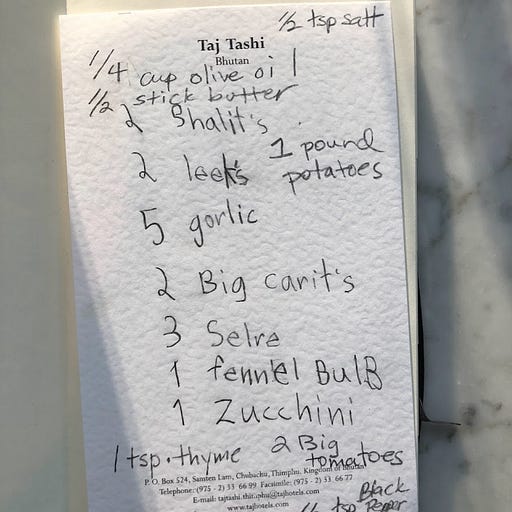 1/2 tsp salt
Taj Tashi
Bhutan
1/4 cup olive oil
1/2 stick butter
2 Shalit's
2 leeks 1 pound potatoes
5 gorlic
2 Big carit's
3 Selre
1 fennel BulB
1 Zucchini
1 tsp. thyme 2 Big tomatoes
P. O. Box 524, Samten Lam, Chubachu, Thimphu, Kingdom of Bhutan
Telephone: (975 - 2) 33 66 99 Facsimile: (975 - 2) 33 66 77
E-mail: tajtashi.thimphu@tajhotels.com
www.tajhotels.com
Black
tsp Peper